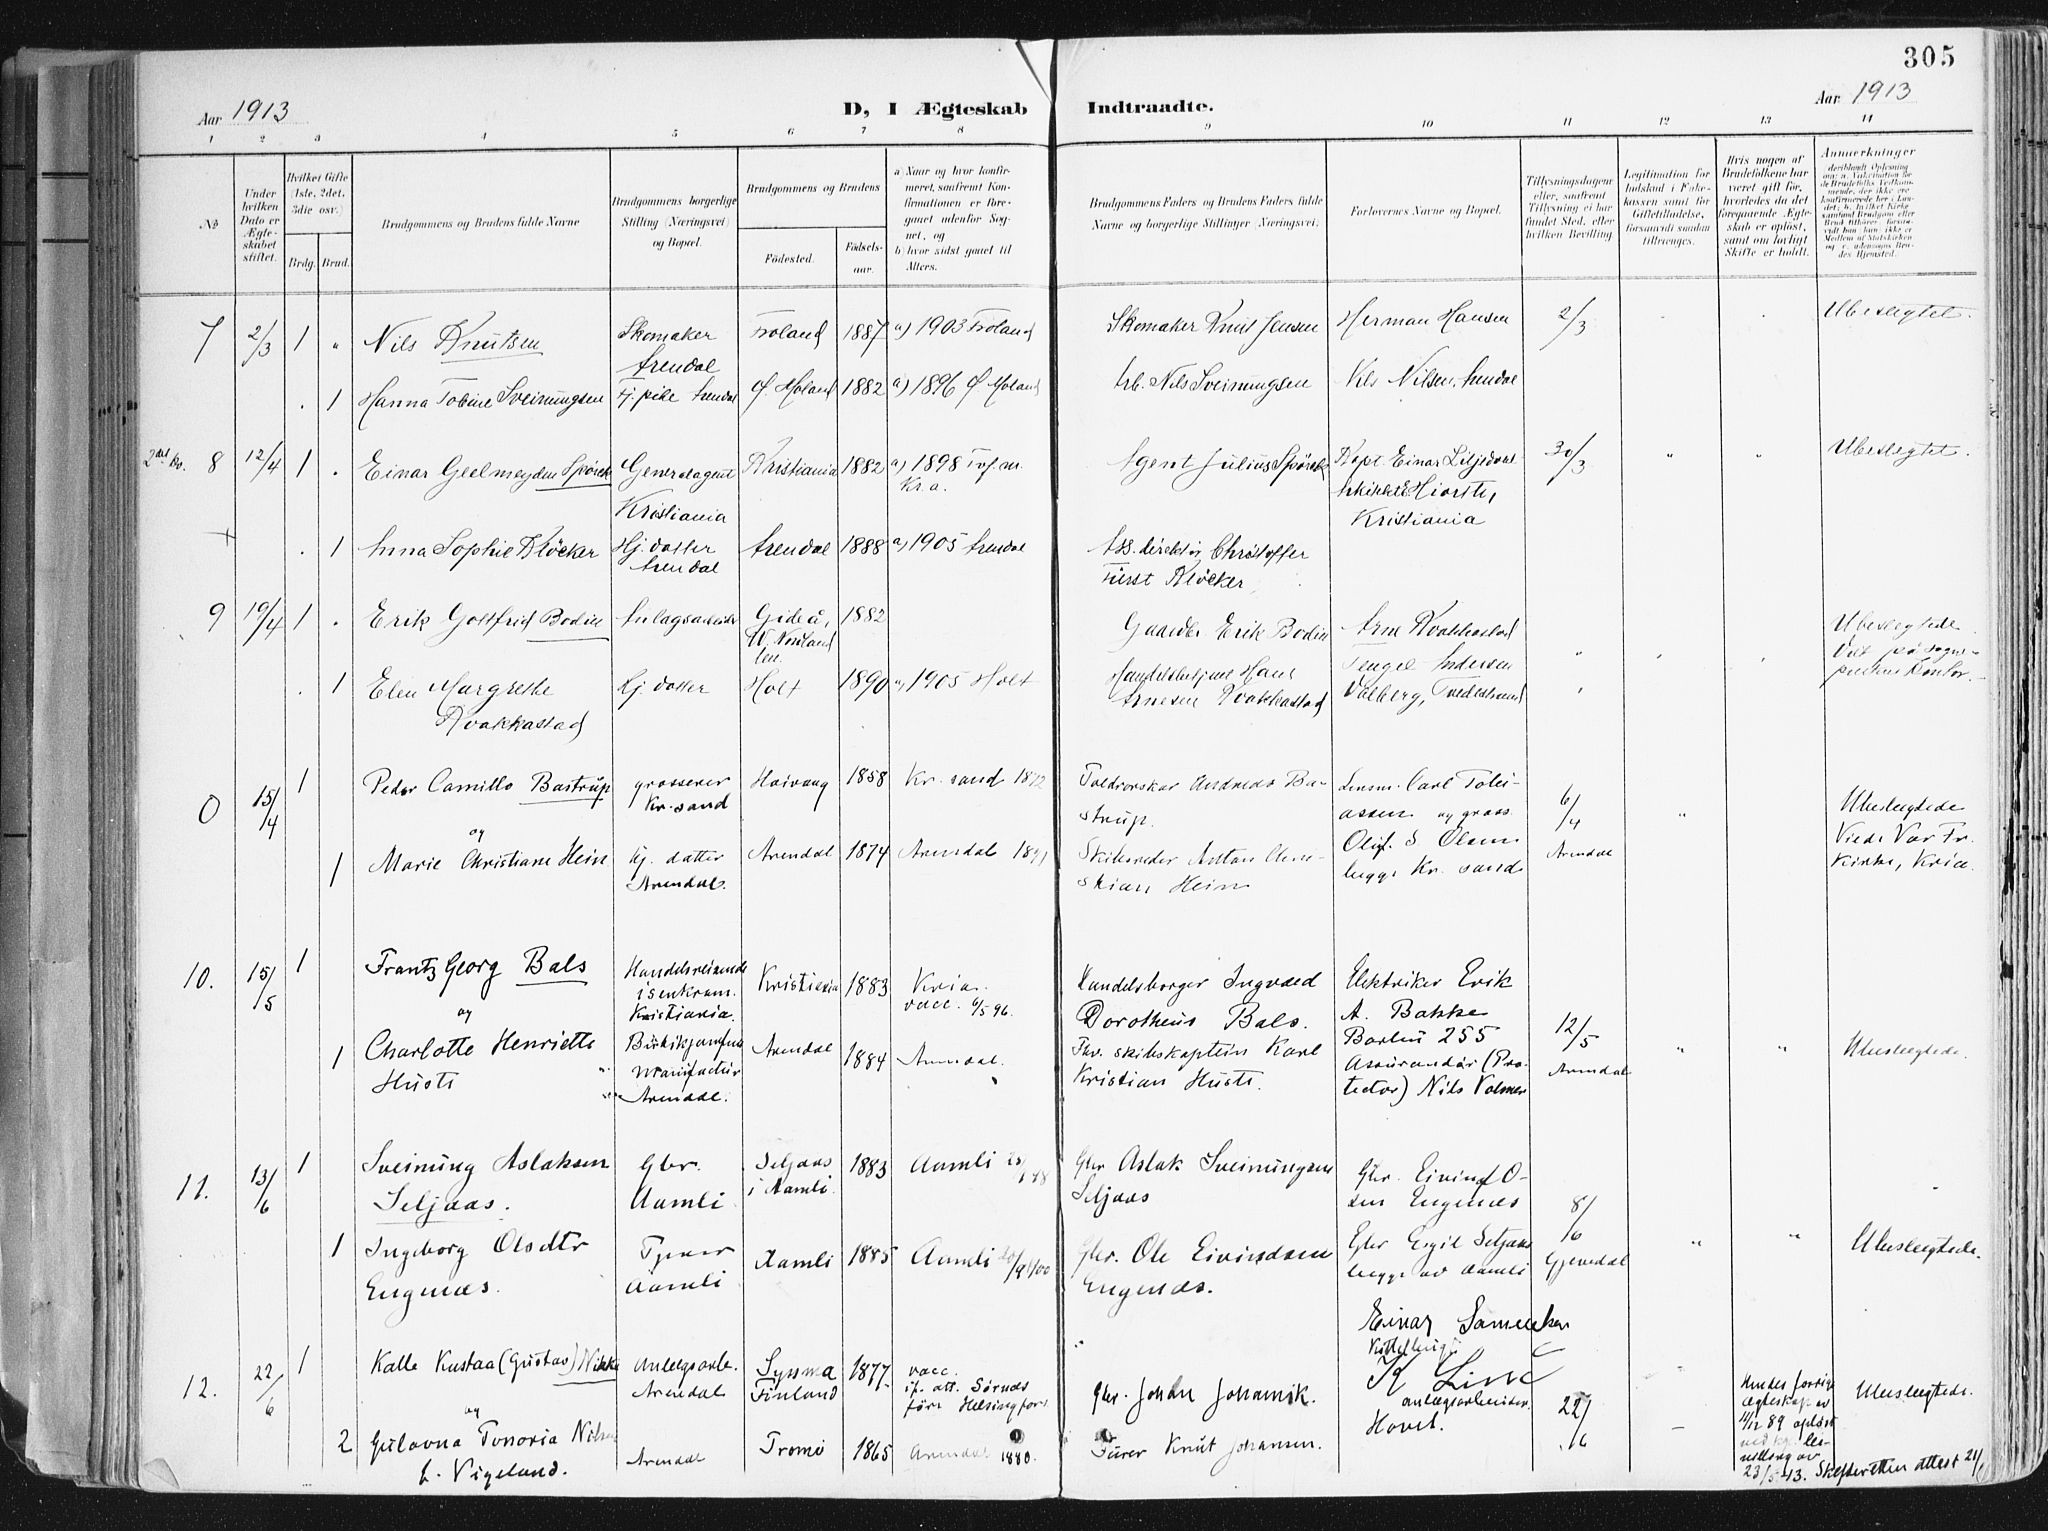 305
Aar 1913
D, I Ægteskab Indtraadte.
Aar 1913
1 2 3 4 5 6 7 8 9 10 11 12 13 14
No
Under hvilken Dato er Ægteskabet stiftet.
Hvilket Gifte (1ste, 2det, 3die osv.)
Brdg. Brud.
Brudgommens og Brudens fulde Navne
Brudgommens borgerlige Stilling (Næringsvei) og Bopæl.
Brudgommens og Brudens
Födested. Födselsaar.
a) Naar og hvor konfirmeret, saafremt Konfirmationen er foregaaet udenfor Sognet, og
b) hvor sidst gaaet til Alters.
Brudgommens Faders og Brudens Faders fulde Navne og borgerlige Stillinger (Næringsvei).
Forlovernes Navne og Bopæl.
Tillysningsdagene eller, saafremt Tillysning ei har fundet Sted, efter hvilken Bevilling
Hvis nogen af Brudefolkene har været gift før, hvorledes da det foregaaende Ægteskab er opløst, samt om lovligt Skifte er holdt.
Anmerkninger
7 2/3 1 " Nils Knutsen Skomaker Arendal Froland 1887 a) 1903 Froland Skomaker Knut Jensen Herman Hansen 2/3 Ubeslegtet.
1 Hanna Tobine Sveinungsen Tj.pike Arendal Ø. Moland 1882 a) 1896 Ø Moland Arb. Nils Sveinungsen Nils Nilsen, Arendal
8 12/4 1 Einar Geelmeyden Spörck Generalagent Kristiania Kristiania 1882 a) 1898 Kr.a. Agent Julius Spörck Kapt. Einar Liljedahl Kristiania 30/3 " " Ubeslegtet.
1 Anna Sophie Klöcker Hj. datter Arendal Arendal 1888 a) 1905 Arendal Ass. direktör Christoffer Fürst Klöcker
9 19/4 1 Erik Gottfrid Bodin Anlagsarbeider Gideå, 1882 Gaardbr. Erik Bodin Arne Kvakkestad Ubeslegtede
1 Elen Margrethe Kvakkestad Hj. datter Holt 1890 a) 1905 Holt Hans Arnesen Kvakkestad Tengel Andersen Valberg, Tvedestrand
0 15/4 1 Peder Camillo Bastrup grosserer Kr.sand Høivaag 1858 Kr. sand 1872 Toldrorskar Andreas Bastrup. Lensm. Carl Tobiassen og gross. Oluf. S Olsen begge Kr. sand 6/4 Arendal " Ubeslegtede Viede Vor Fr. Kirke, Kria.
og
1 Marie Christiane Hein Hj. datter Arendal. Arendal 1874 Arendal 1891 Skibsreder Anton Christian Hein
10. 15/5 1 Frantz Georg Bals Handelsreisende isenkram. Kristiania. Kristiania 1883 Kria. vacc. 6/5 96. Handelsborger Ingvald Dorotheus Bals. Elektriker Erik A. Bakke Barbu 255 12/5 Arendal " " Ubeslegtede.
og
1 Charlotte Henriette Husti manufactur Arendal. Arendal 1884 Arendal. Fhv. skibskaptein Karl Kristian Husti. Assurandör (Protector) Nils Volmer
11. 13/6 1 Sveinung Aslaksen Seljaas. Gbr. Aamli Seljaas i Aamli 1883 Aamli Gbr Aslak Sveinungsen Seljaas Gbr. Eivind Olsen Engenes 8/6 Gjøvedal " " Ubeslegtede.
1 Ingeborg Olsdtr Engenes. Tjener Aamli Aamli 1885 Aamli Gbr. Ole Eivindsen Engenes. Gbr Ergil Seljaas begge av Aamli
Einar Samuelsen
12. 22/6 1 Kalle Kustaa (Gustav) Nikka Anlegsarb. Arendal Sysmä Finland 1877 vacc. if. att. Sørnäs förs. Helsingfors Gbr. Johan Johannik. K Line anlegsarbeider. Hovet. 22/6 " Hendes forrige ægteskap av 11/12 89 opløst ved kgl. bevilling av 23/5-13. Skifteretten attest 21/ Ubeslegtede.
og
2 Gulovna Tonoria Nilsen f. Vigeland. Arendal Tromö 1865 Arendal 1880. Fører Knut Johansen.